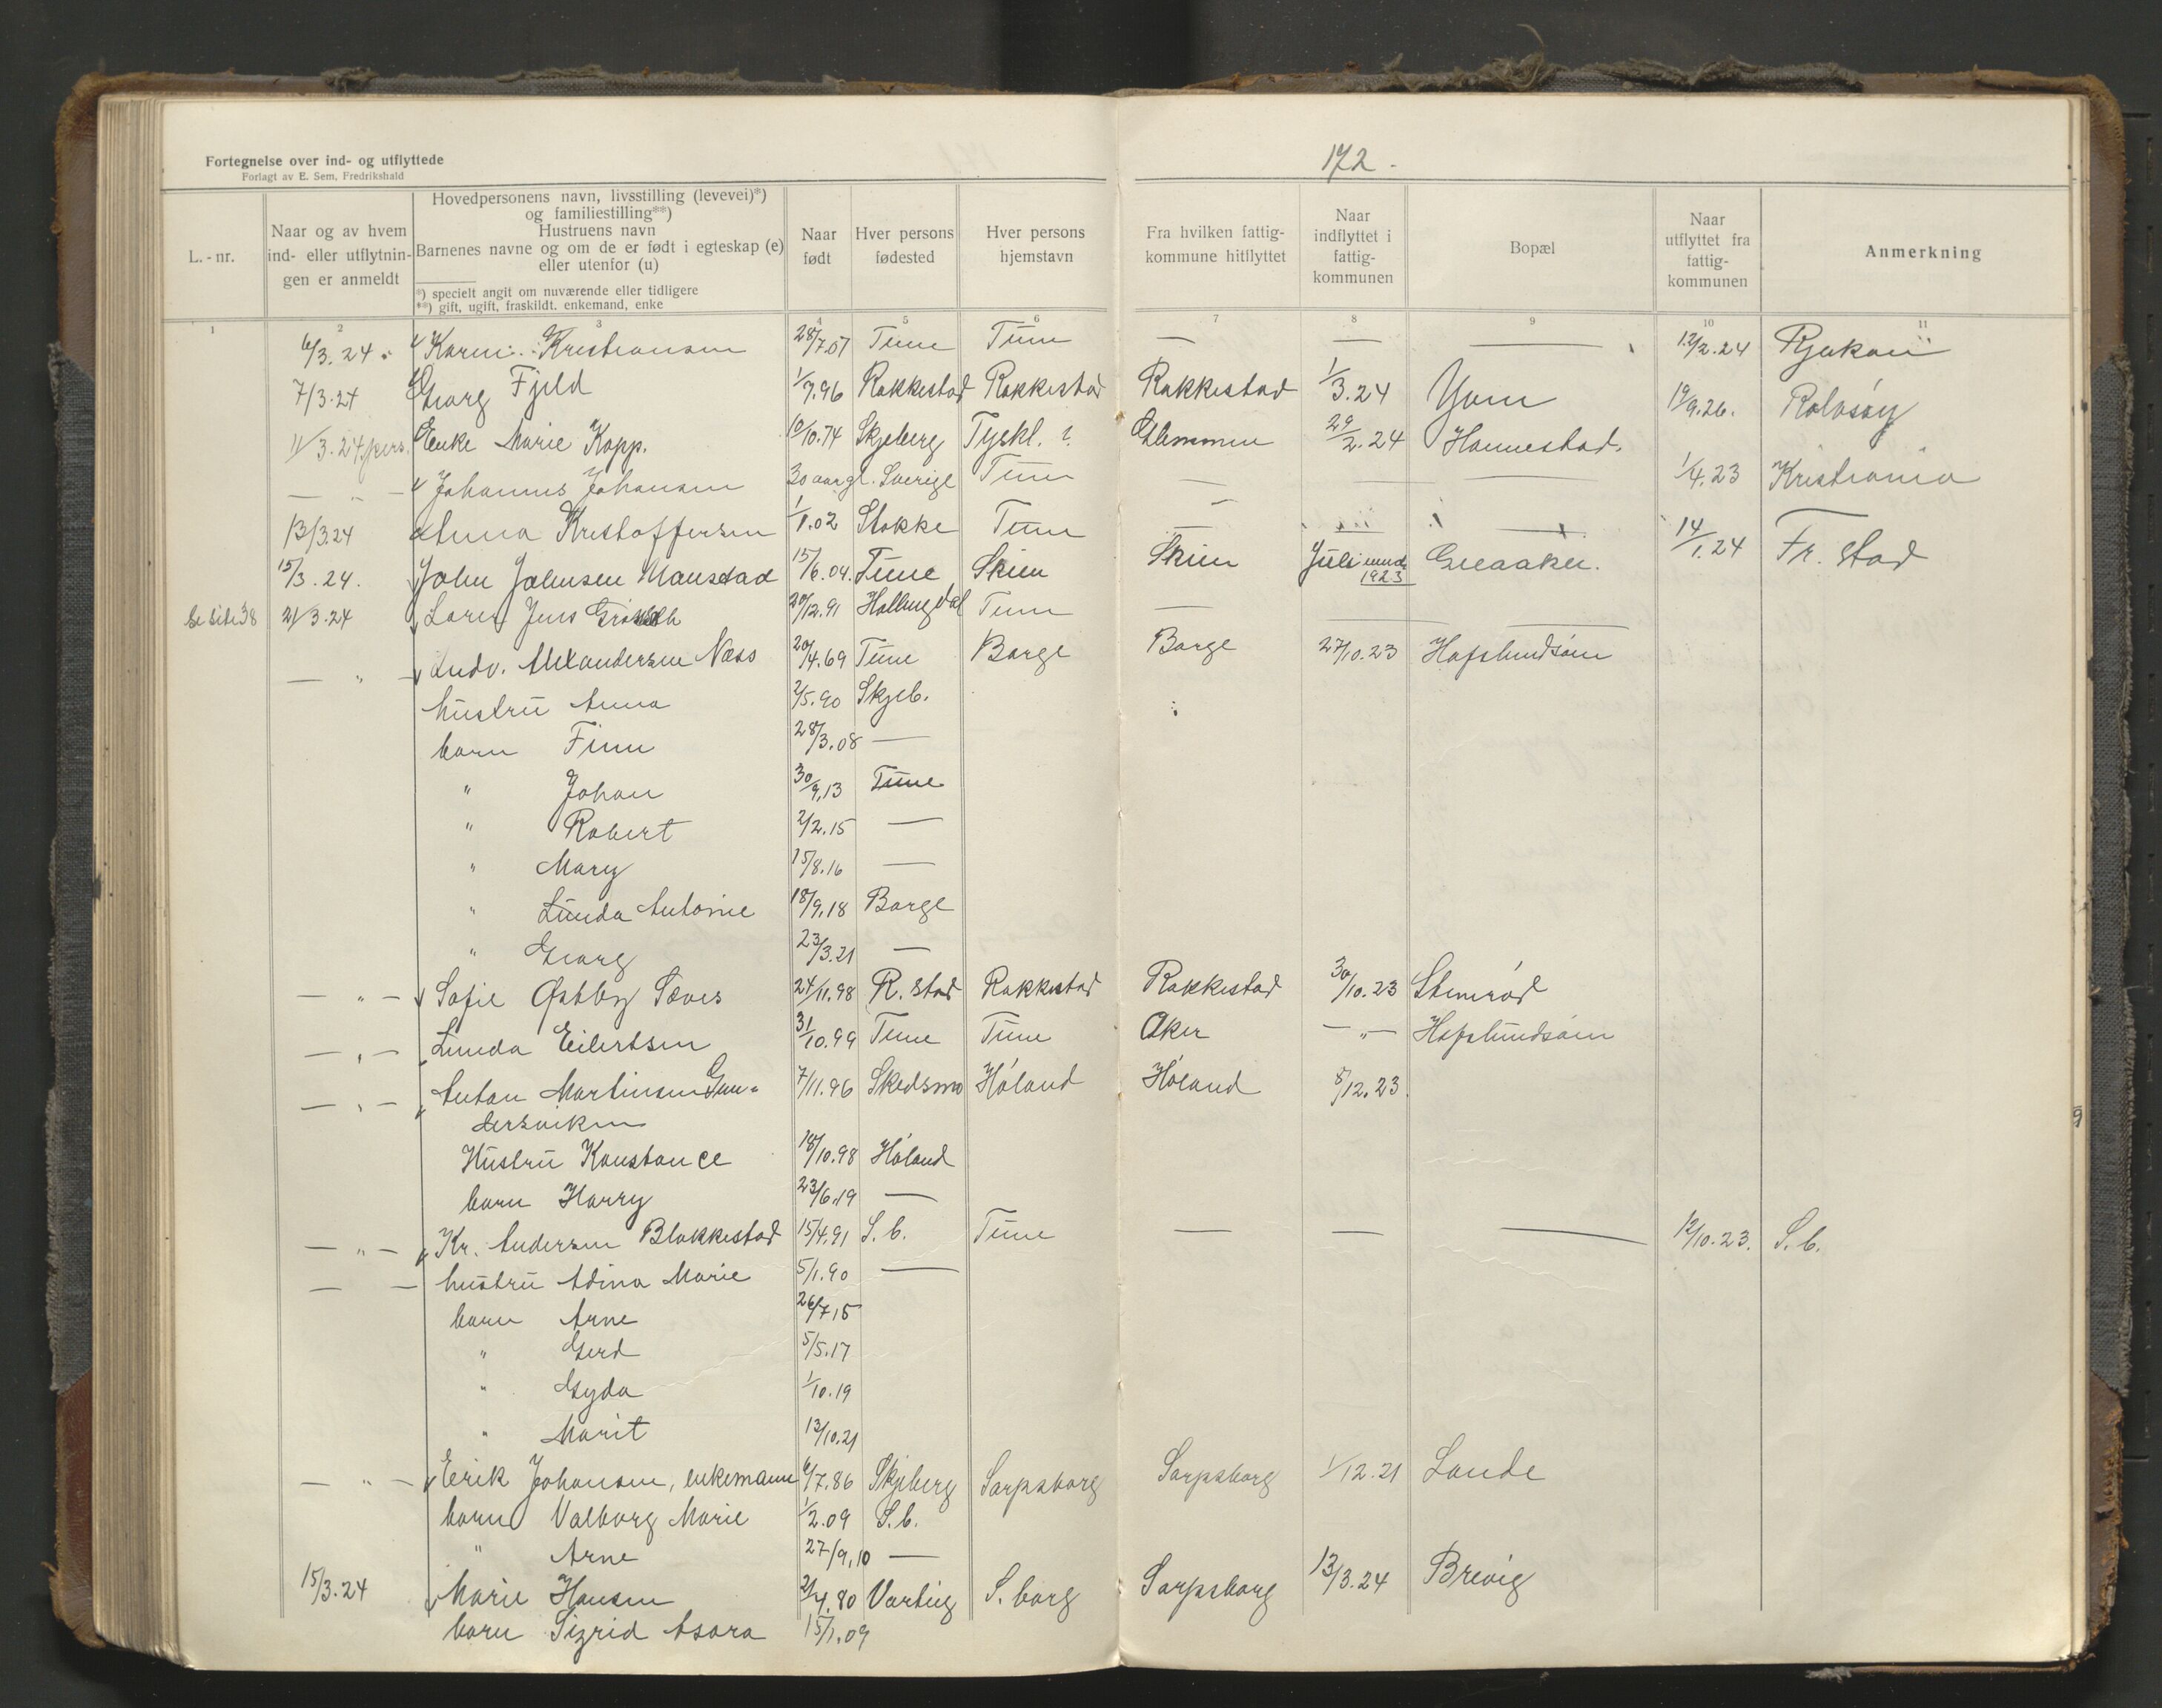 Fortegnelse over ind- og utflyttede
Forlagt av E. Sem, Fredrikshald
172.
L.-nr. Naar og av hvem ind- eller utflytningen er anmeldt Hovedpersonens navn, livsstilling (levevei)*) og familiestilling**) Hustruens navn Barnenes navne og om de er født i egteskap (e) eller utenfor (u) Naar født Hver persons fødested Hver persons hjemstavn Fra hvilken fattigkommune hitflyttet Naar indflyttet i fattigkommunen Bopæl Naar utflyttet fra fattigkommunen Anmerkning
*) specielt angit om nuværende eller tidligere
**) gift, ugift, fraskildt. enkemand, enke
1 2 3 4 5 6 7 8 9 10 11
6/3.24. Karin Kristiansen 28/7.07 Tune Tune — — — 12/2.24 Rjukan
7/3.24 Georg Fjeld 1/7.96 Rakkestad Rakkestad Rakkestad 1/3.24 Yven 19/9.26. Rolvsøy
11/3.24 pers. Enke Marie Kopp. 10/10.74 Skjeberg Tyskl. ? Glemmen 29/2.24 Hannestad.
— " — Johannes Johansen 30 aar gl. Sverige Tune — — — 1/4.23 Kristiania
13/3.24 Anna Kristoffersen 1/1.02 Stokke Tune — — 14/1.24 Fr.stad
15/3.24. John Johnsen Manstad 15/6.04. Tune Skien Skien Juli mnd. 1923 Greaaker.
Se side 38 21/3.24 Lorer Jens 20/12.91 Hallingdal Tune — — —
— " — Ludv. Alexandersen Næss 20/4.69 Tune Borge Borge 27/10.23 Hafslundsøen
hustru Anna 2/5.90 Skjeb.
barn Finn 28/3.08 —
" Johan 30/9.13 Tune
" Robert 2/2.15 —
" Mary 15/8.16 —
" Lunda Antonie 18/9.18 Borge
" Georg 23/3.21 —
— " — Sofie Østby Sæves 24/11.98 R.stad Rakkestad Rakkestad 30/10.23 Stenrød
— " — Lunda Eilertsen 31/10.99 Tune Tune Aker — " — Hafslundsøen
— " — Anton Martinsen Gun-
dersviken 7/11.96 Skedsmo Høland Høland 8/12.23.
Hustru Konstance 18/10.98 Høland
barn Harry 23/6.19 —
— " — Kr. Andersen Blakkestad 15/4.91 S.b. Tune — — — 12/10.23. S.b.
— — hustru Adina Marie 5/1.90 —
barn Arne 26/7.15
" Gerd 5/5.17
" Gyda 1/10.19
" Marit 13/10.21
— " — Erik Johansen, enkemann 6/7.86 Skjeberg Sarpsborg Sarpsborg 1/12.21 Lande
barn Valborg Marie 1/2.09 S.b.
" Arne 27/9.10 —
15/3.24 Marie Hansen 2/4.80 Varteig S.borg Sarpsborg 13/3.24 Brevig
barn Sigrid Asora 15/1.09